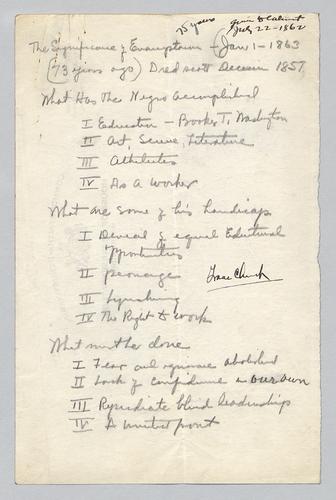 75 years given to Cabinet
July 22-1862
The Significance of Emancipation - Jan 1-1863
(73 years ago) Dred Scott Decision 1857
What Has the Negro Accomplished
I Education - Booker T. Washington
II Art, Science, Literature
III Athletes
IV As a worker
What are some of his handicaps
I Denial of equal Educational
opportunities
II peonage
III Lynching
IV The Right to work
What must be done
I Fear and ignorance abolished
II Lack of confidence in our own
III Repudiate blind leaderships
IV A united front